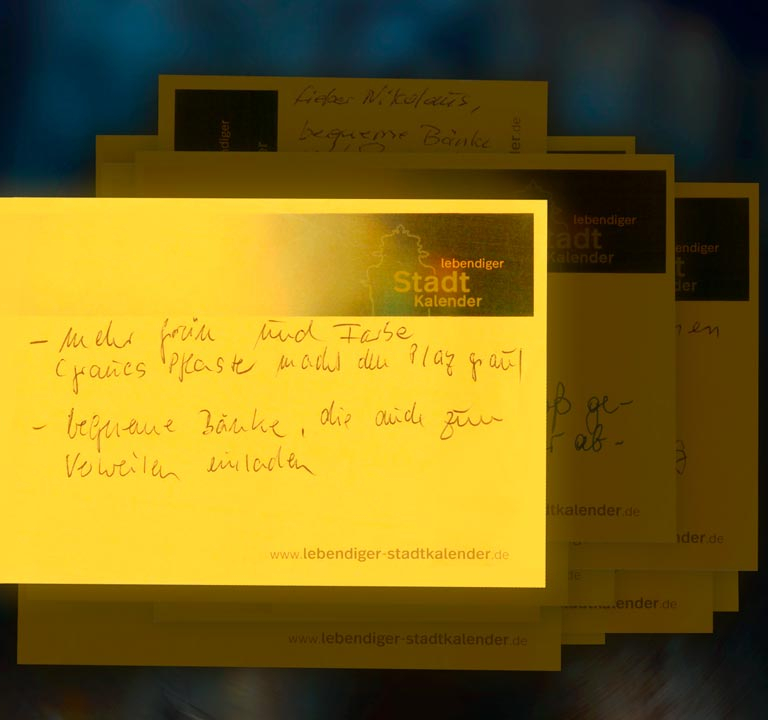 lieber Nikolaus,
bequeme Bänke
lebendiger
.de
lebendiger
Stadt
Kalender
- mehr grün und Farbe
(graues Pflaster macht den Platz grau)
- bequeme Bänke, die auch zum
Verweilen einladen
www.lebendiger-stadtkalender.de
lebendiger
tadt
Kalender
ge-
ab-
dtkalender.de
endiger
t
der
en
nder.de
de
ender.de
www.lebendiger-stadtkalender.de